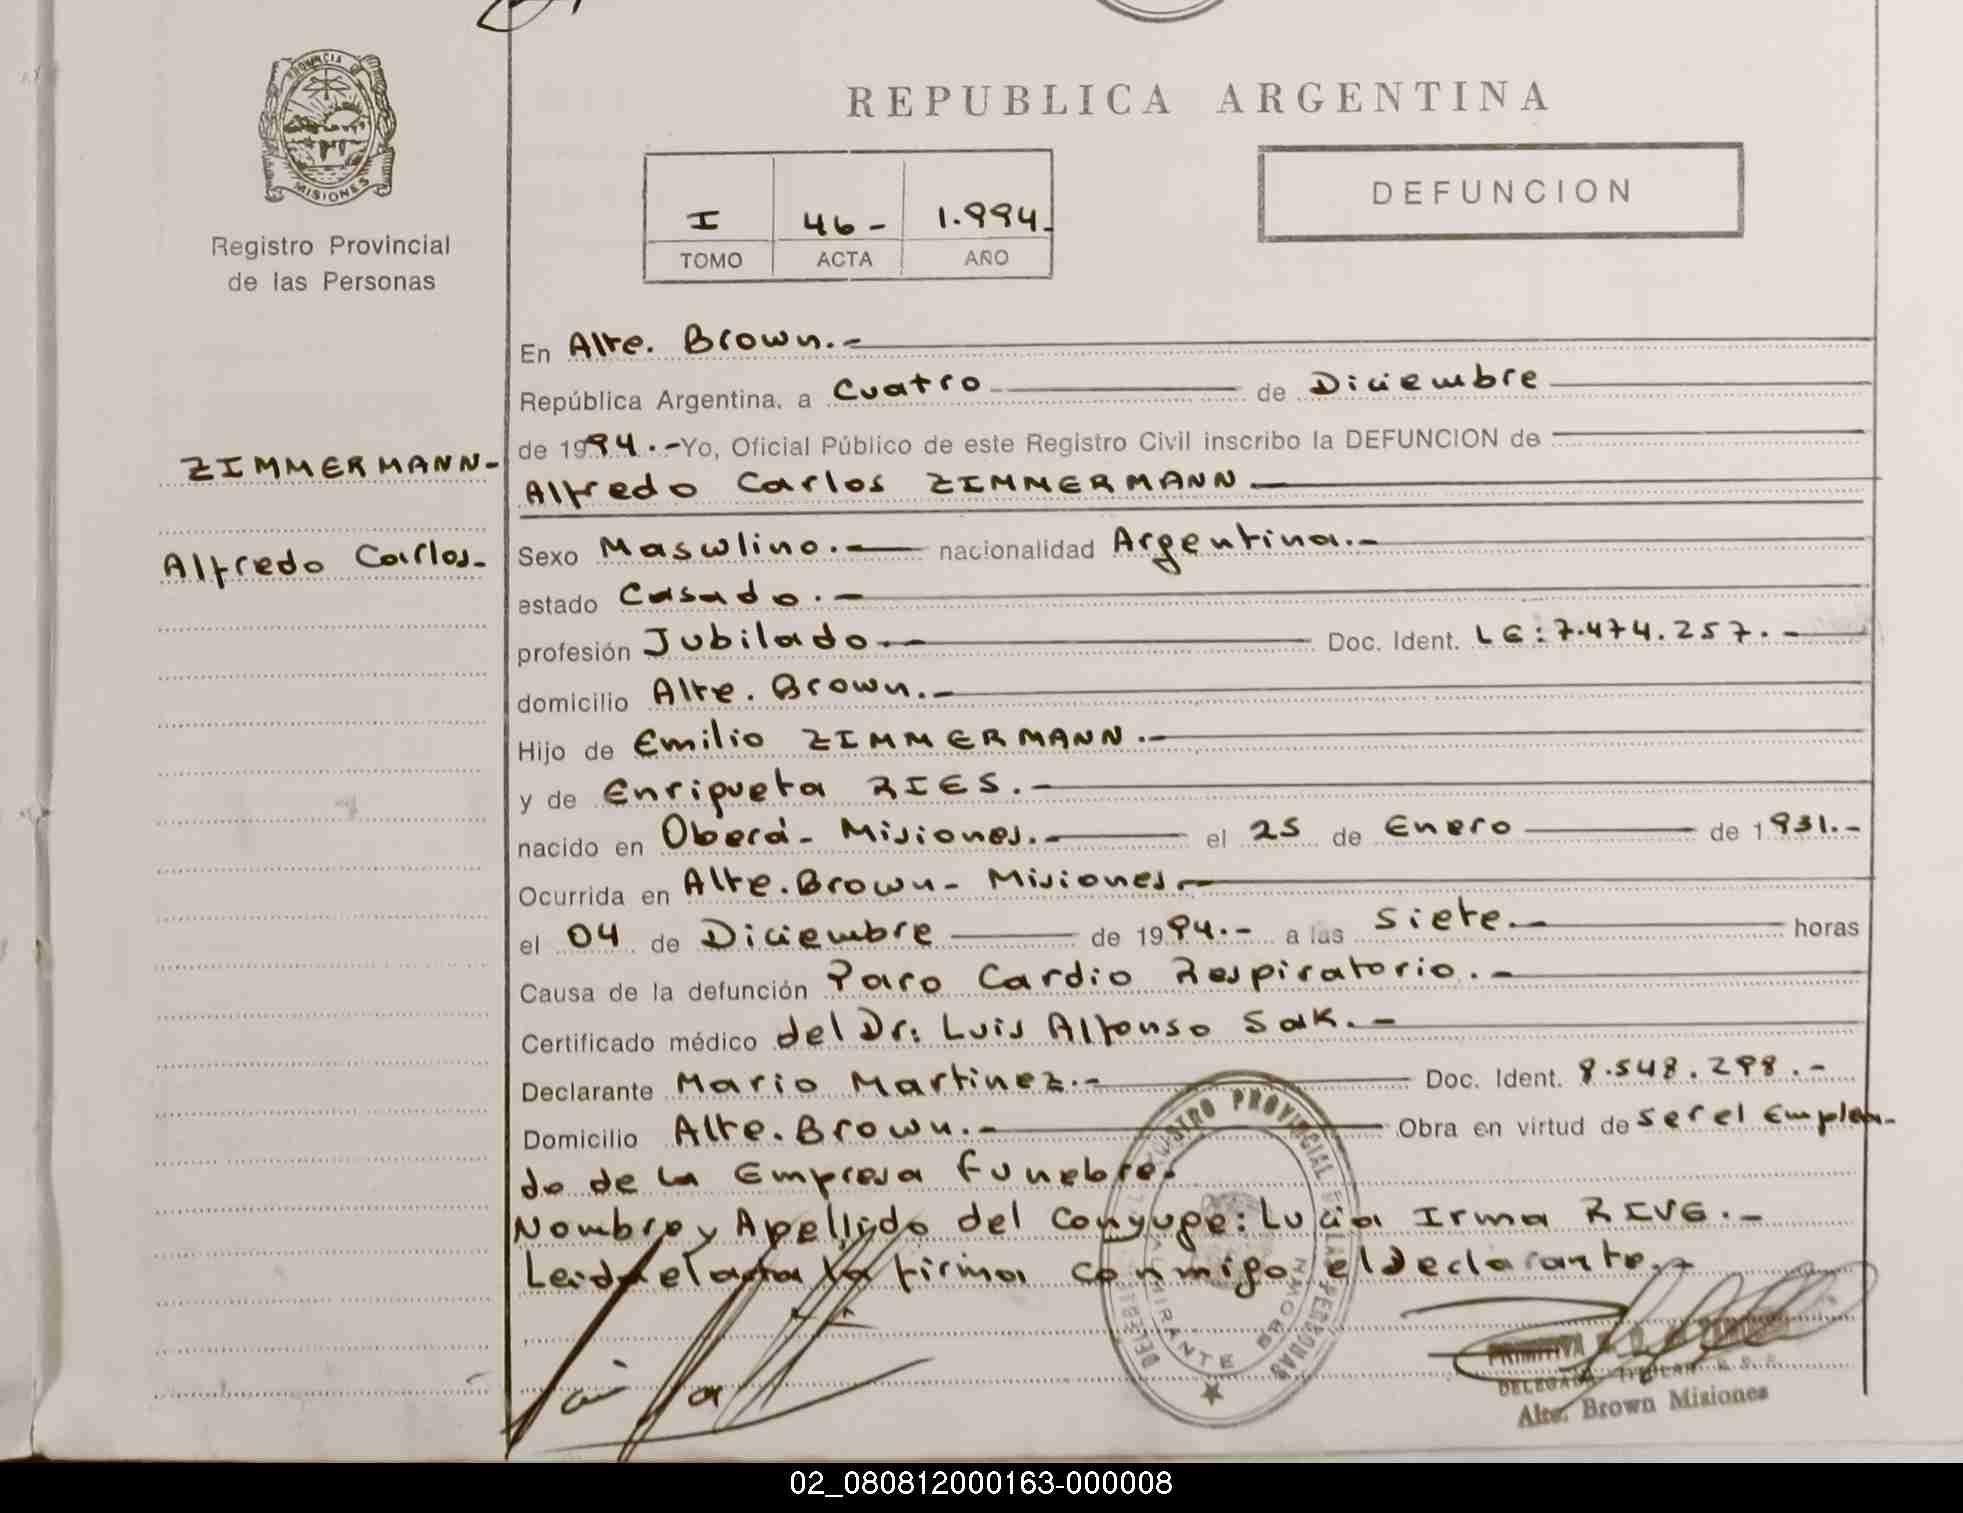 PROVINCIA DE
MISIONES
Registro Provincial
de las Personas
ZIMMERMANN-
Alfredo Carlos.-
REPUBLICA ARGENTINA
DEFUNCION
I 46- 1.994.
TOMO ACTA AÑO
En Alte. Brown.-
República Argentina, a Cuatro de Diciembre
de 1994.- Yo, Oficial Público de este Registro Civil inscribo la DEFUNCION de
Alfredo Carlos ZIMMERMANN
Sexo Masculino.- nacionalidad Argentina.-
estado Casado.-
profesión Jubilado.- Doc. Ident. LE: 7.474.257.-
domicilio Alte. Brown.-
Hijo de Emilio ZIMMERMANN.-
y de Enriqueta RIES.-
nacido en Oberá- Misiones.- el 25 de Enero de 1931.-
Ocurrida en Alte. Brown- Misiones.-
el 04 de Diciembre de 1994.- a las Siete.- horas
Causa de la defunción Paro Cardio Respiratorio.-
Certificado médico del Dr: Luis Alfonso Sak.-
Declarante Mario Martinez.- Doc. Ident. 8.548.298.-
Domicilio Alte. Brown.- Obra en virtud de ser el Emplea-
do de la Empresa Funebre.
Nombre y Apellido del Conyuge: Lucia Irma RIVE.-
Leida el acta la firma conmigo el Declarante.-
REGISTRO PROVINCIAL DE LAS PERSONAS
ALMIRANTE BROWN
PRIMITIVA
DELEGADA TITULAR
Alte. Brown Misiones
02_080812000163-000008